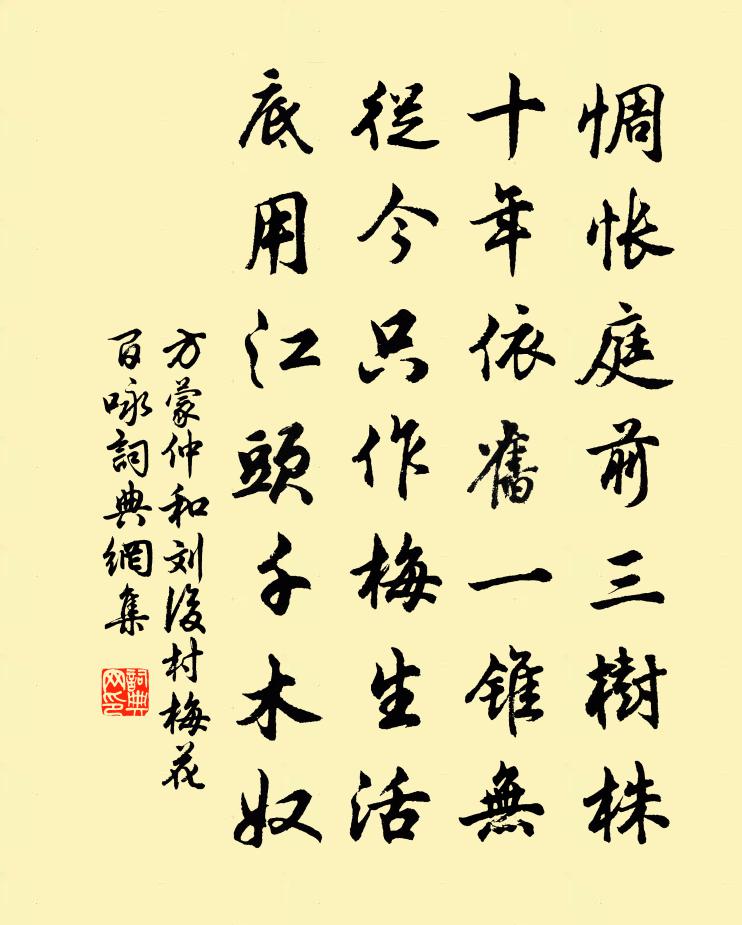 惆悵庭前三樹株
十年依舊一錐無
從今只作梅生活
底用江頭千木奴
方蒙仲和刘後村梅花
百咏詞典網集
詞典
网印